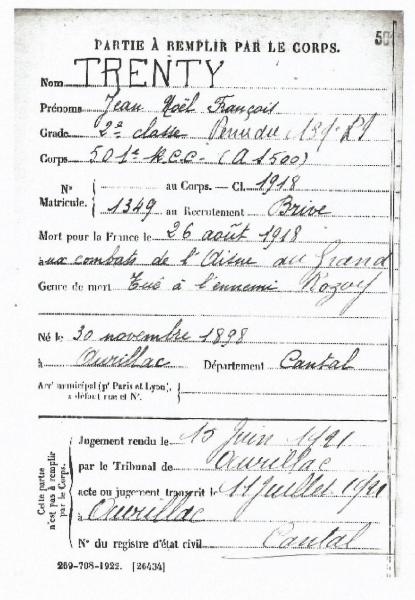 50
PARTIE À REMPLIR PAR LE CORPS.
Nom TRENTY
Prénoms Jean Noël François
Grade 2e classe
Corps 501e R.C.C. (A 1500)
N° Matricule. { au Corps. — Cl. 1918
1349 au Recrutement Brive
Mort pour la France le 26 août 1918
à aux combats de l'Aisne au Grand
Genre de mort Tué à l'ennemi Rozoy
Né le 30 novembre 1898
à Aurillac Département Cantal
Arr' municipal (p' Paris et Lyon), à défaut rue et N°. {
Cette partie n'est pas à remplir par le Corps. {
Jugement rendu le 15 Juin 1921
par le Tribunal de Aurillac
acte ou jugement transcrit le 11 Juillet 1921
à Aurillac
N° du registre d'état civil Cantal
269-708-1922. [26434]